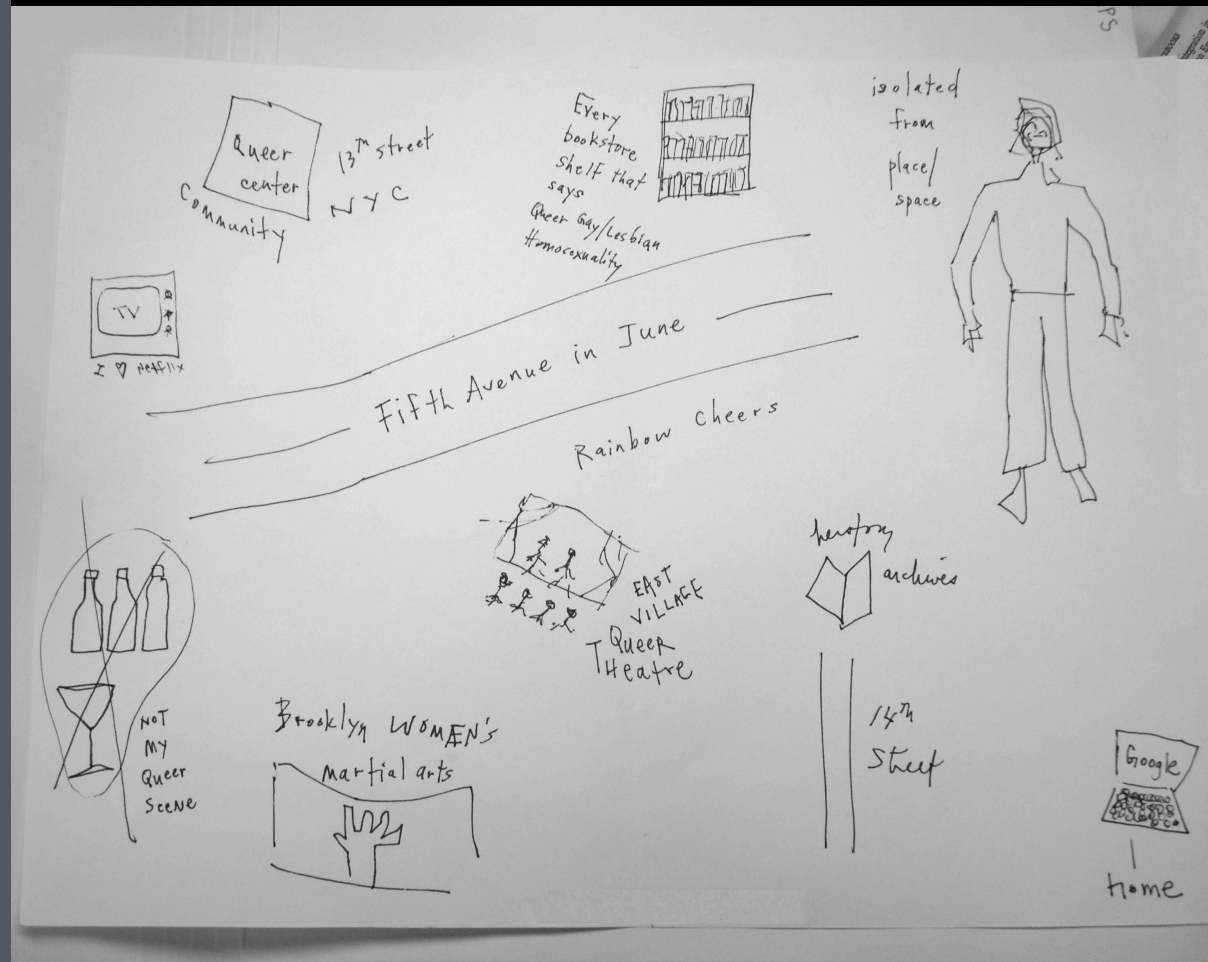 Queer
center
Community
13th street
NYC
Every
bookstore
shelf that
says
Queer Gay/Lesbian
Homosexuality
isolated
from
place/
space
TV
I ♡ Netflix
Fifth Avenue in June
Rainbow Cheers
EAST
VILLAGE
Queer
Theatre
archives
14th
Street
NOT
MY
Queer
Scene
Brooklyn WOMEN's
martial arts
Google
home